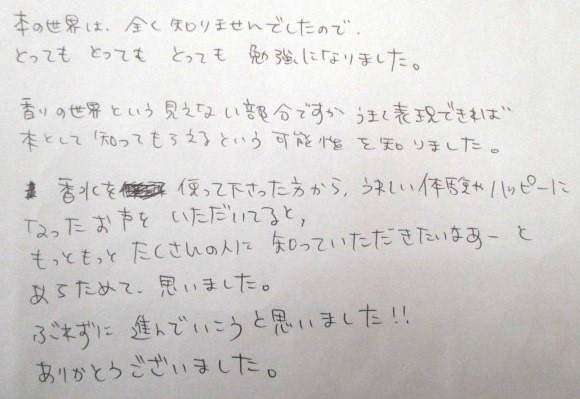 本の世界は、全く知りませんでしたので、
とっても とっても とっても 勉強になりました。
香りの世界という見えない部分ですが うまく表現できれば
本として知ってもらえるという可能性を知りました。
香水を 使って下さった方から、うれしい体験やハッピーに
なったお声を いただいてると、
もっともっと たくさんの人に 知っていただきたいなあーと
あらためて、思いました。
ぶれずに 進んでいこうと思いました!!
ありがとうございました。